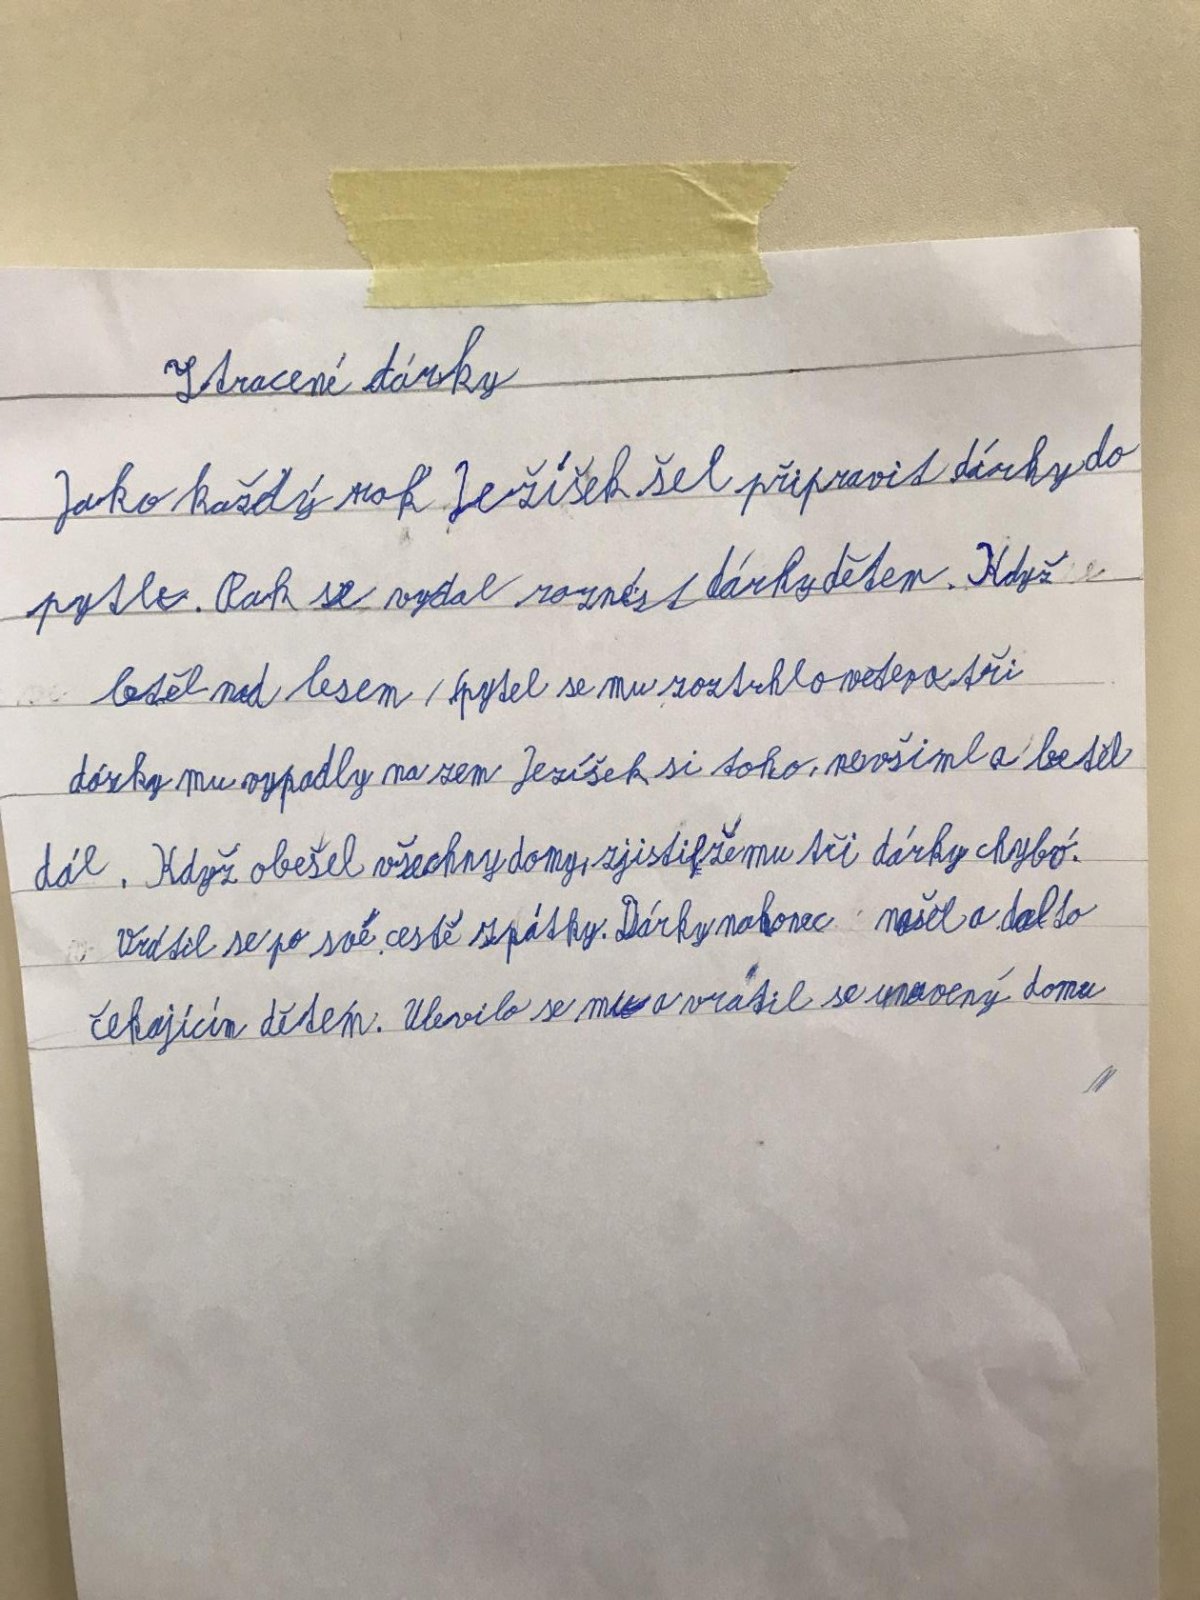 Ztracené dárky
Jako každý rok Ježíšek šel připravit dárky do
pytle. Pak se vydal roznést dárky dětem. Když
letěl nad lesem, pytel se mu roztrhl a
dárky mu vypadly na zem Jezíšek si toho, nevšiml a letěl
dál. Když obešel všechny domy, zjistil, že mu tři dárky chybó.
Vrátil se po své cestě zpátky. Dárky nakonec našel a dal to
čekajícím dětem. Ulevilo se mu a vrátil se unavený domu